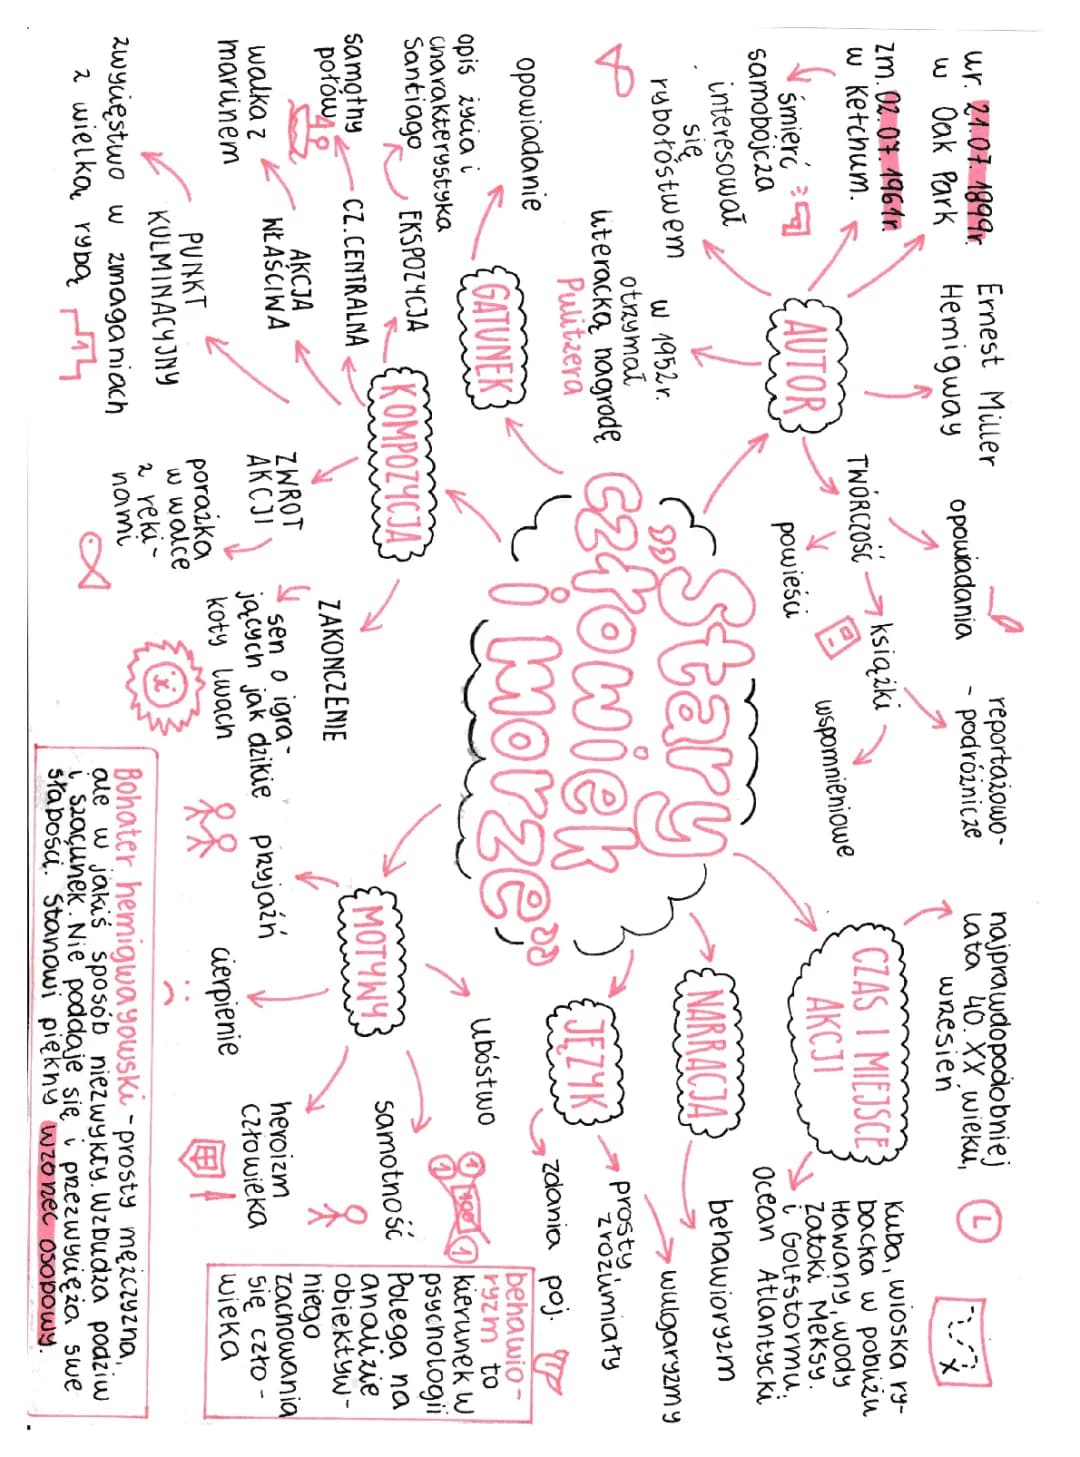 „Stary
człowiek
i morze"
AUTOR
Ernest Miller
Hemigway
ur. 21.07.1899r.
w Oak Park
zm. 02.07.1961r.
w Ketchum.
śmierć
samobójcza
interesował
się
rybołóstwem
w 1952r.
otrzymał
literacką nagrodę
Pulitzera
TWÓRCZOŚĆ
opowiadania
powieści
książki
reportażowo-
- podróżnicze
wspomnieniowe
CZAS I MIEJSCE
AKCJI
najprawdopodobniej
lata 40. XX wieku,
wrzesień
Kuba, wioska ry-
backa w pobliżu
Hawany, wody
Zatoki Meksy.
i Golfstormu,
Ocean Atlantycki
NARRACJA
behawioryzm
JĘZYK
wulgaryzmy
prosty,
zrozumiały
zdania poj.
behawio-
ryzm to
kierunek w
psychologii
Polega na
analizie
obiektyw-
niego
zachowania
się czło-
wieka
GATUNEK
opowiadanie
KOMPOZYCJA
EKSPOZYCJA
opis życia i
charakterystyka
Santiago
CZ. CENTRALNA
samotny
połów
AKCJA
WŁAŚCIWA
walka z
marlinem
PUNKT
KULMINACYJNY
zwycięstwo w zmaganiach
z wielką rybą
1
ZWROT
AKCJI
porażka
w walce
z reki-
nami
ZAKOŃCZENIE
sen o igra-
jących jak dzikie
koty lwach
MOTYWY
ubóstwo
1
100
1
1
samotność
heroizm
człowieka
cierpienie
przyjaźń
Bohater hemigwayowski - prosty mężczyzna,
ale w jakiś sposób niezwykły. Wzbudza podziw
i szacunek. Nie poddaje się i przezwycięża swe
słabości. Stanowi piękny wzorzec osobowy.